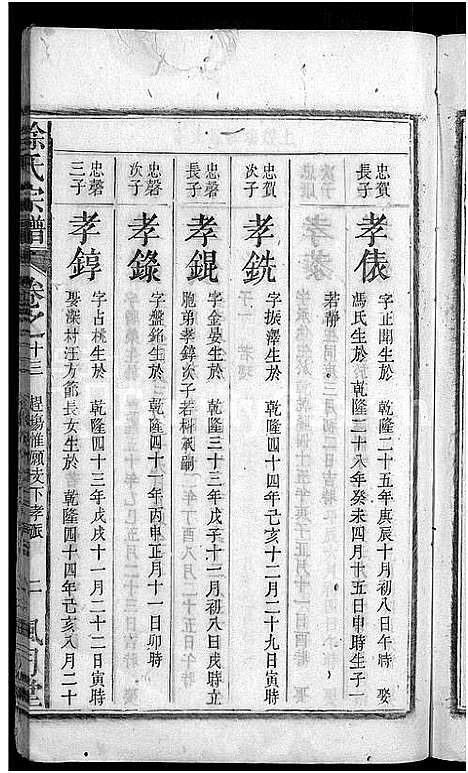 忠賀長子
孝俵
字正聞生於 乾隆二十五年庚辰十月初八日午時 娶
馮氏生於 乾隆二十八年癸未四月十五日申時生子一
若靜
忠賀次子
孝銑
字振澤生於 乾隆四十四年己亥十二月二十九日寅時
忠磬長子
孝錕
字金晏生於 乾隆三十三年戊子十一月初八日戌時立
胞弟孝錞次子若 承嗣
忠磬次子
孝錄
字盤銘生於 乾隆四十一年丙申正月十一日卯時
忠磬三子
孝錞
字占桃生於 乾隆四十三年戊戌十一月二十二日寅時
娶深村汪方節長女生於 乾隆四十四年己亥八月二十
徐氏宗譜
卷之十三
惟願支下孝派
二